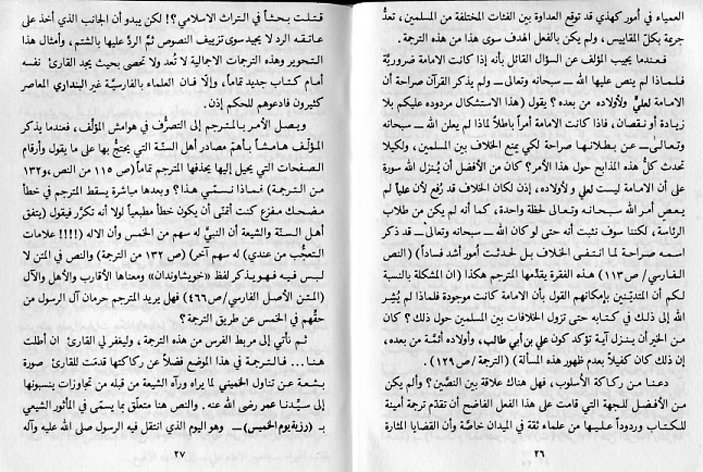 العمياء في أمور كهذي قد توقع العداوة بين الفئات المختلفة من المسلمين، تعدُّ
جريمة بكلّ المقاييس، ولم يكن بالفعل الهدف سوى هذا من هذه الترجمة.
فعندما يجيب المؤلف عن السؤال القائل بأنه إذا كانت الامامة ضروريّة
فلماذا لم ينص عليها الله ــ سبحانه وتعالى ــ ولم يذكر القرآن صراحة أن
الامامة لعليٍّ ولأولاده من بعده؟ يقول (هذا الاستشكال مردوده عليكم بلا
زيادة أو نقصان، فاذا كانت الامامة أمراً باطلاً لماذا لم يعلن الله ــ سبحانه
وتعالى ــ عن بطلانها صراحة لكي يمنع الخلاف بين المسلمين، ولكيلا
تحدث كلُّ هذه المذابح حول هذا الأمر؟ كان من الأفضل أن يُنزل الله سورة
على أن الامامة ليست لعلي ولأولاده، إذن لكان الخلاف قد رُفع لأن علياً لم
يعص أمر الله سبحانه وتعالى لحظة واحدة، كما أنه لم يكن من طلاب
الرئاسة، لكننا سوف نثبت أنه حتى لو كان الله ــ سبحانه وتعالى ــ قد ذكر
اسمه صراحة لما انتفى الخلاف بل لحدثت أمور أشد فساداً) (النص
الفارسي/ص١١٣) هذه الفقرة يقدّمها المترجم هكذا (ان المشكلة بالنسبة
لكم أن المتديّنين بإمكانهم القول بأن الامامة كانت موجودة فلماذا لم يُشر
الله إلى ذلك في كتابه حتى تزول الخلافات بين المسلمين حول ذلك؟ كان
من الخير أن ينزل آية تؤكد كون علي بن أبي طالب، وأولاده أئمّة من بعده،
إن ذلك كان كفيلاً بعدم ظهور هذه المسألة) (الترجمة/ص١٢٩).
دعنا من ركاكة الأسلوب، فهل هناك علاقة بين النصّين؟ وألم يكن
من الأفضل للجهة التي قامت على هذا الفعل الفاضح أن تقدّم ترجمة أمينة
للكتاب وردوداً عليها من علماء ثقة في الميدان خاصّة وأن القضايا المثارة
٢٦
قتلت بحثاً في التراث الاسلامي؟! لكن يبدو أن الجانب الذي أخذ على
عاتقه الرد لا يجيد سوى تزييف النصوص ثمَّ الردِّ عليها بالشتم، وأمثال هذا
التحوير وهذه الترجمات الاجمالية لا تُعد ولا تحصى بحيث يجد القارئ نفسه
أمام كتاب جديد تماماً، وإلّا فان العلماء بالفارسيّة غير البنداري المعاصر
كثيرون فادعوهم للحكم إذن.
ويصل الأمر بالمترجم إلى التصرُّف في هوامش المؤلف، فعندما يذكر
المؤلف هامشاً بأهمّ مصادر أهل السنّة التي يحتجُّ بها على ما يقول وأرقام
الصفحات التي يحيل إليها يحذفها المترجم تماماً (ص ١١٥ من النص، و١٣٢
من الترجمة) فماذا نسمّي هذا؟ وبعدها مباشرة يسقط المترجم في خطأ
مضحك مفزع كنت أتمنّى أن يكون خطأ مطبعياً لولا أنه تكرّر فيقول (يتفق
أهل السنّة والشيعة أن النبيَّ له سهم من الخمس وأن الاله (!!!! علامات
التعجّب من عندي) له سهم آخر) (ص ١٣٢ من الترجمة) والنص في المتن لا
لبس فيه فهو يذكر لفظ «خويشاوندان» ومعناها الأقارب والأهل والآل
(المتن الأصل الفارسي/ص٤٦٦) فهل يريد المترجم حرمان آل الرسول من
حقّهم في الخمس عن طريق الترجمة؟
ثم نأتي إلى مربط الفرس من هذه الترجمة، وليغفر لي القارئ ان أطلت
هنا... فالترجمة في هذا الموضع فضلاً عن ركاكتها قدمَت للقارئ صورة
بشعة عن تناول الخميني لما يراه ورآه الشيعة من قبله من تجاوزات ينسبونها
إلى سيّدنا عمر رضي الله عنه. والنص هنا متعلّق بما يسمّى في المأثور الشيعي
بـ (رزية يوم الخميس) ــ وهو اليوم الذي انتقل فيه الرسول صلى الله عليه وآله
٢٧